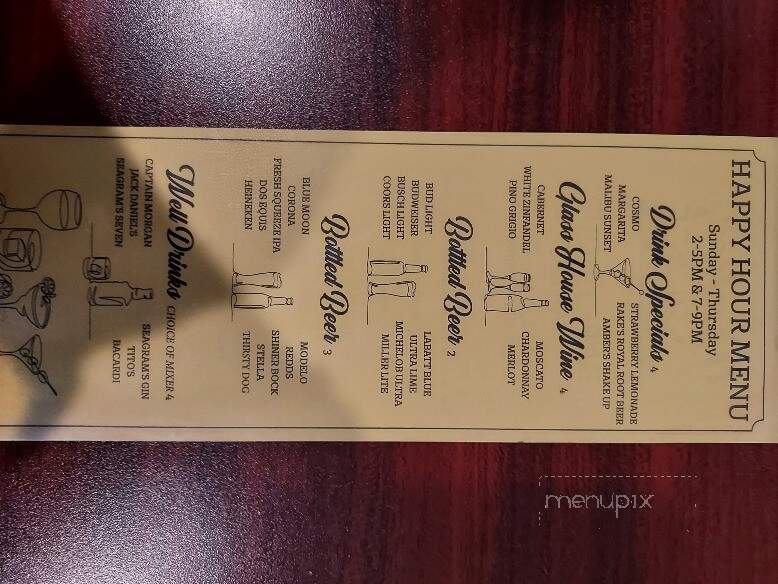 HAPPY HOUR MENU
Sunday - Thursday
2-5PM & 7-9PM
Drink Specials 4
COSMO
MARGARITA
MALIBU SUNSET
STRAWBERRY LEMONADE
RAKE'S ROYAL ROOT BEER
AMBER'S SHAKE UP
Glass House Wine 4
CABERNET
WHITE ZINFANDEL
PINO GRIGIO
MOSCATO
CHARDONNAY
MERLOT
Bottled Beer 2
BUD LIGHT
BUDWEISER
BUSCH LIGHT
COORS LIGHT
LABATT BLUE
ULTRA LIME
MICHELOB ULTRA
MILLER LITE
Bottled Beer 3
BLUE MOON
CORONA
FRESH SQUEEZE IPA
DOS EQUIS
HEINEKEN
MODELO
REDDS
SHINER BOCK
STELLA
THIRSTY DOG
Well Drinks CHOICE OF MIXER 4
CAPTAIN MORGAN
JACK DANIEL'S
SEAGRAM'S SEVEN
SEAGRAM'S GIN
TITO'S
BACARDI
menupix